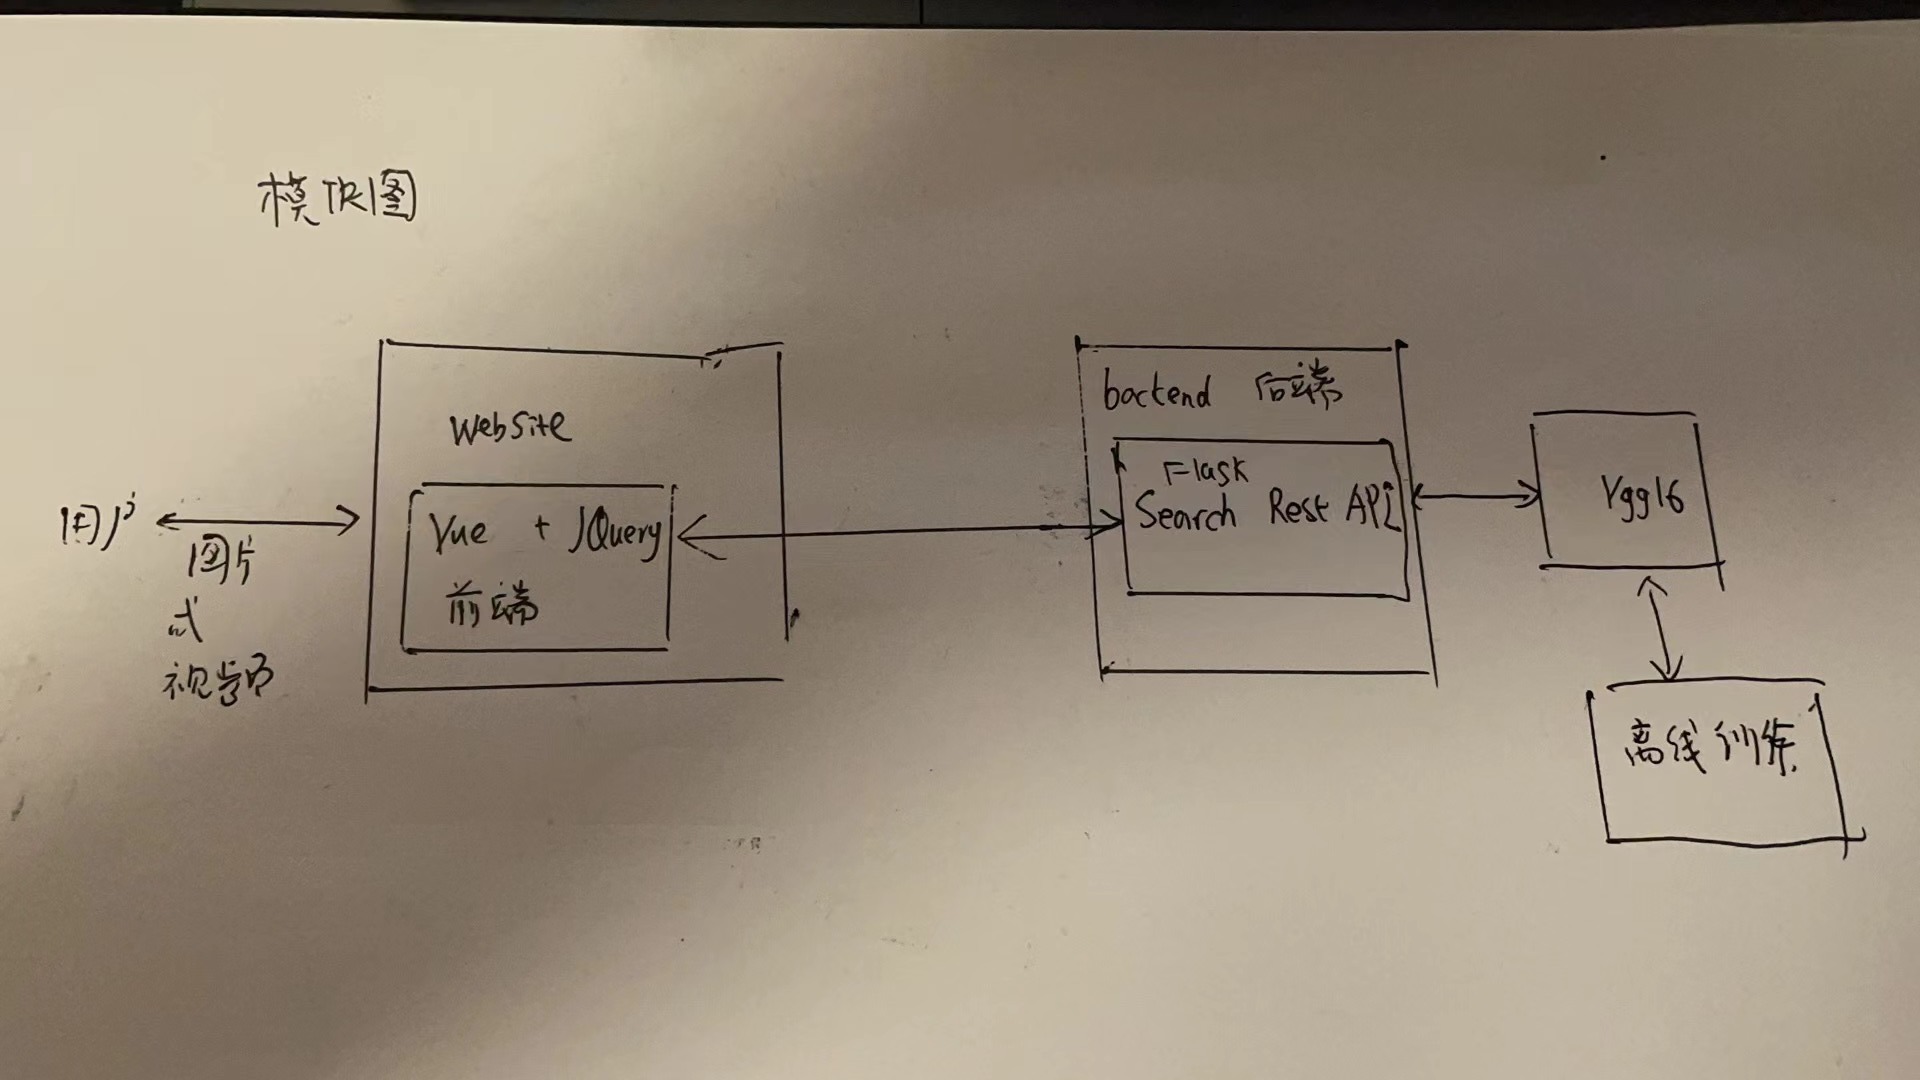 模块图
用户
图片
或
视频
WebSite
Vue + JQuery
前端
backend 后端
Flask
Search Rest API
Vgg16
离线训练